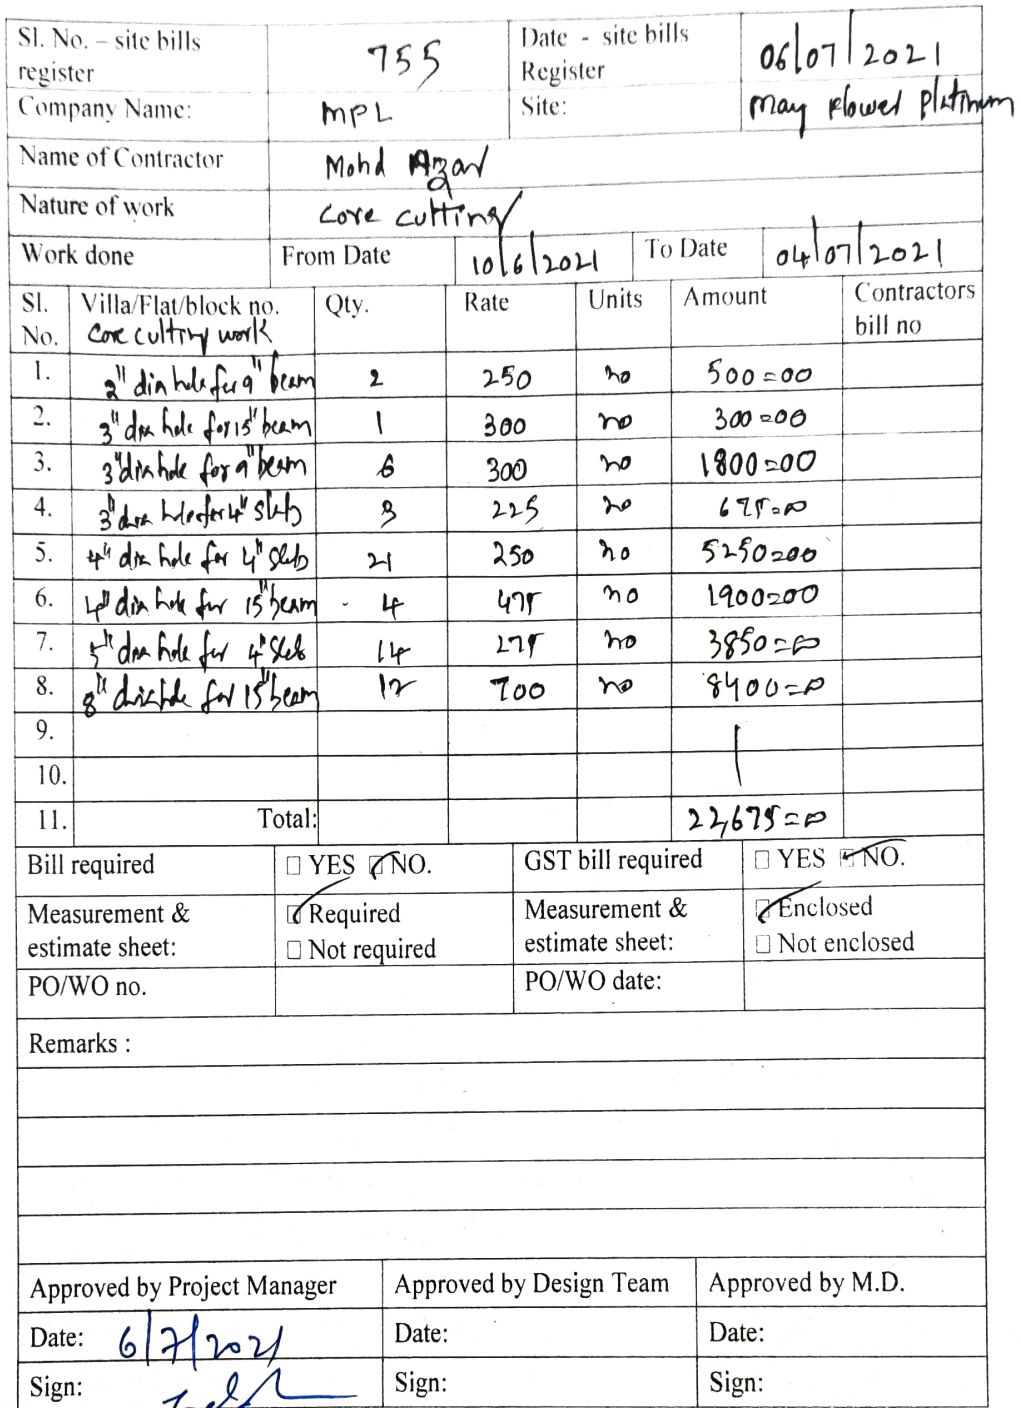 Sl. No. – site bills register 755 Date - site bills Register 06/07/2021
Company Name: MPL Site: May Flower Platinum
Name of Contractor Mohd Azar
Nature of work Core cutting
Work done From Date 10/6/2021 To Date 04/07/2021
Sl. No. Villa/Flat/block no. Core cutting work Qty. Rate Units Amount Contractors bill no
1. 2" dia hole for 9" beam 2 250 no 500=00
2. 3" dia hole for 15" beam 1 300 no 300=00
3. 3" dia hole for 9" beam 6 300 no 1800=00
4. 3" dia hole for 4" slab 3 225 no 675=00
5. 4" dia hole for 4" slab 21 250 no 5250=00
6. 4" dia hole for 15" beam 4 475 no 1900=00
7. 5" dia hole for 4" slab 14 275 no 3850=00
8. 8" dia hole for 15" beam 12 700 no 8400=00
9.
10.
11. Total: 22,675=00
Bill required □ YES ☑ NO. GST bill required □ YES ☑ NO.
Measurement & estimate sheet: ☑ Required □ Not required Measurement & estimate sheet: ☑ Enclosed □ Not enclosed
PO/WO no. PO/WO date:
Remarks :
Approved by Project Manager Approved by Design Team Approved by M.D.
Date: 6/7/2021 Date: Date:
Sign: Sign: Sign: